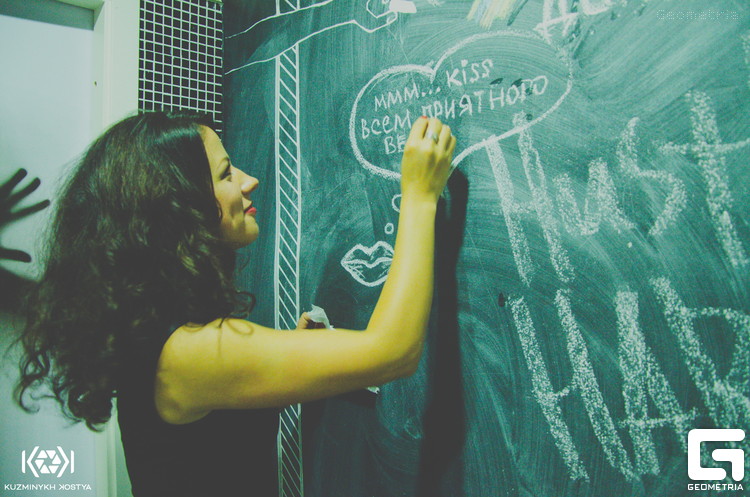 Geometria
МММ... KISS
ВСЕМ ПРИЯТНОГО
ВЕ
Just
HAP
KUZMINYKH KOSTYA
GEOMETRIA